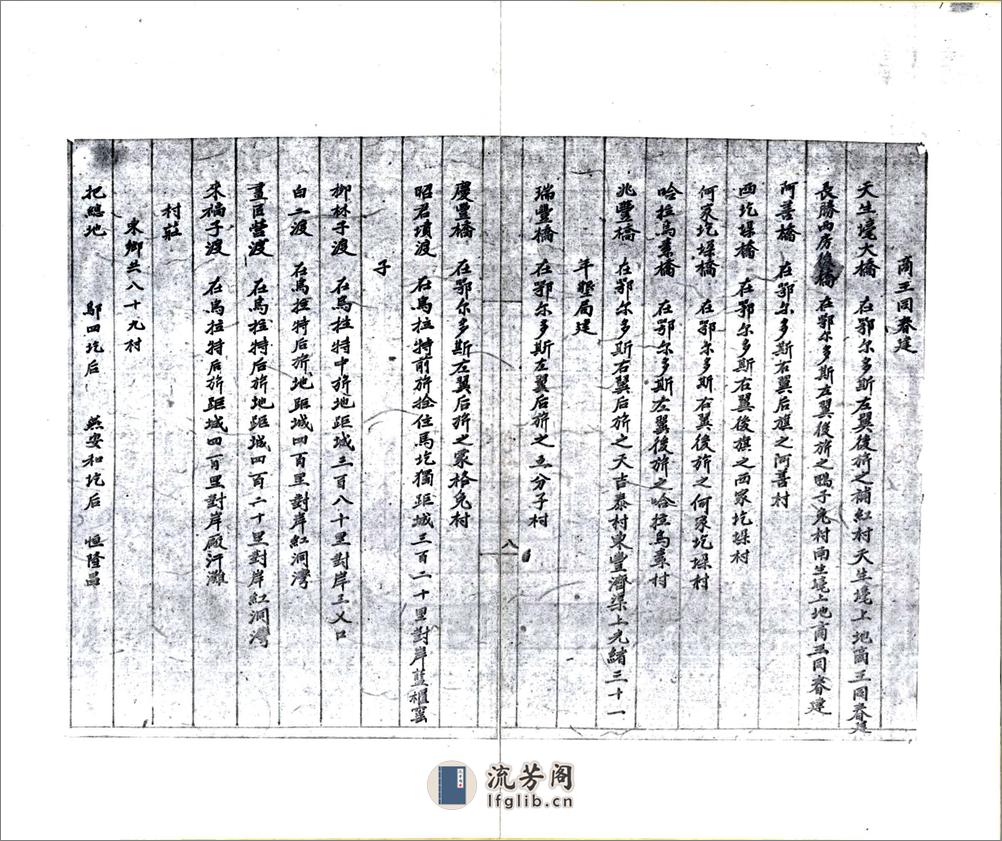 商王同春建
天生壕大橋 在鄂尔多斯左翼後旂之補紅村天生壕上地商王同春建
長勝西房後橋 在鄂尔多斯左翼後旂之鴨子兔村南生壕上地商王同春建
阿善橋 在鄂尔多斯右翼后旗之阿善村
西圪堵橋 在鄂尔多斯右翼後旗之西家圪垛村
何家圪垛橋 在鄂尔多斯右翼後旂之何家圪垛村
哈拉烏素橋 在鄂尔多斯左翼後旂之哈拉烏素村
兆豐橋 在鄂尔多斯右翼后旂之天吉泰村東豐濟渠上光緒三十一
年墾局建
瑞豐橋 在鄂尔多斯左翼后旂之五分子村
八
慶豐橋 在鄂尔多斯左翼后旂之冢格兔村
昭君墳渡 在烏拉特前旂捨住馬圪獨距城三百二十里對岸藍櫃窰
子
柳林子渡 在烏拉特中旂地距城三百八十里對岸三乂口
白二渡 在烏拉特后旂地距城四百里對岸紅洞灣
畫匠營渡 在烏拉特后旂地距城四百二十里對岸紅洞灣
宋禍子渡 在烏拉特后旂距城四百里對岸廠汗灘
村莊
東鄉共八十九村
把總地 鄔四圪后 燕安和圪后 恒隆昌
流芳阁
lfglib.cn